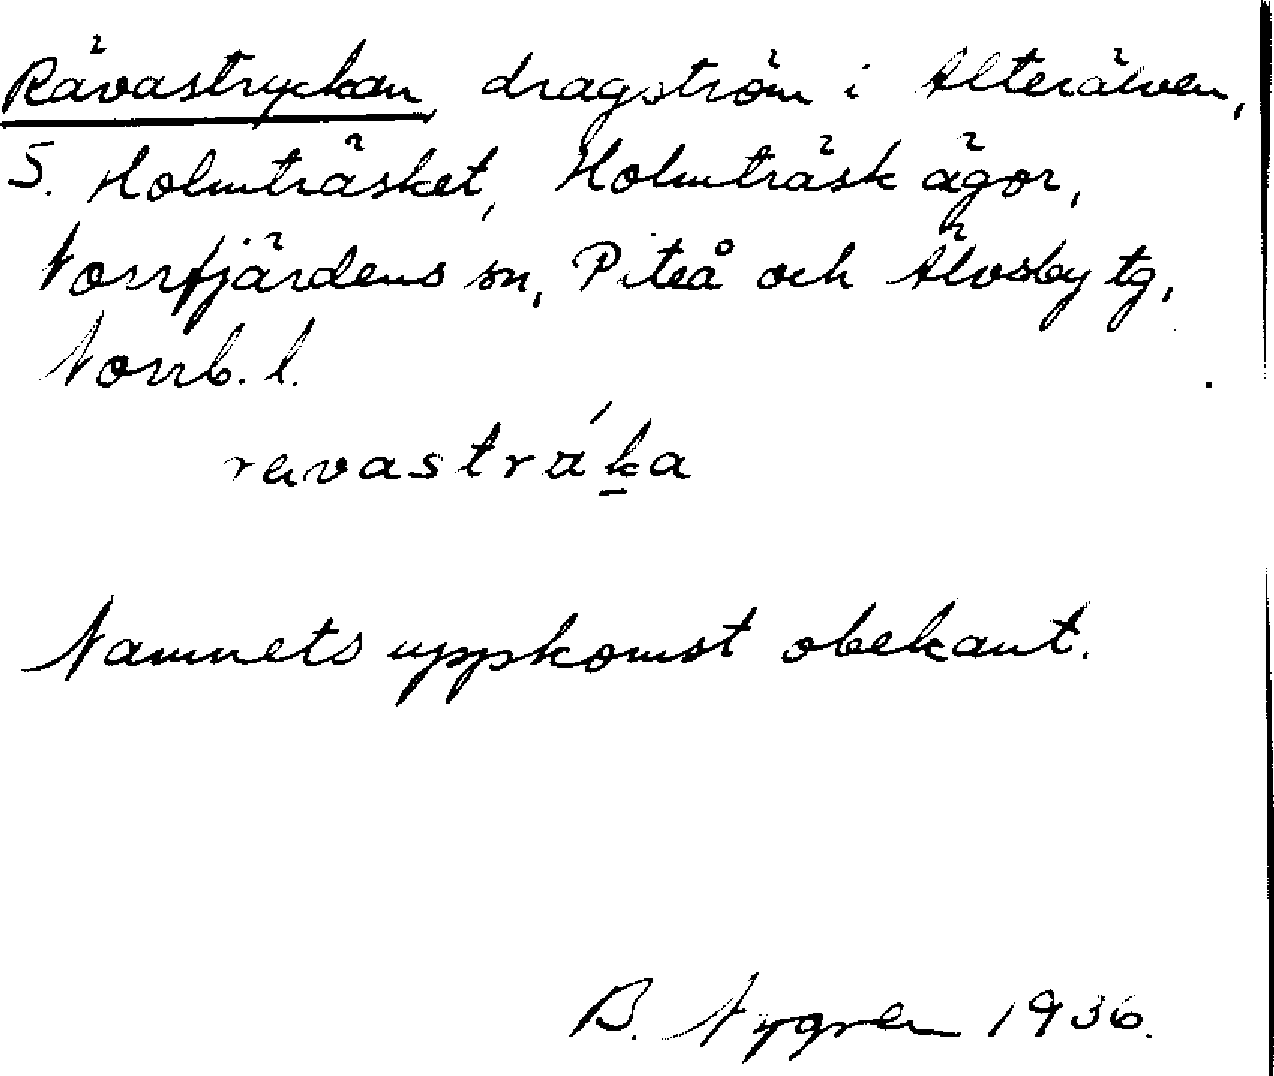 Rävastryckan, dragström i Alterälven,
S. Holmträsket, Holmträsk ägor,
Norrfjärdens sn, Piteå och Älvsby tg,
Norrb. l.
Namnets uppkomst obekant.
B. Nygren 1936.